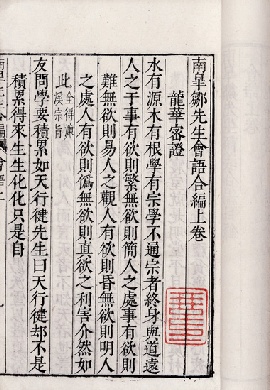 南臯鄒先生會語合編上卷
龍華密證
水有源木有根學有宗學不通宗者終身與道遠
人之于事有欲則繁無欲則簡人之處事有欲則
難無欲則易人之觀人有欲則昏無欲則明人
之處人有欲則僞無欲則直欲之利害介然如
此
友問學要積累如天行健先生曰天行健却不是
積累得來生生化化只是自